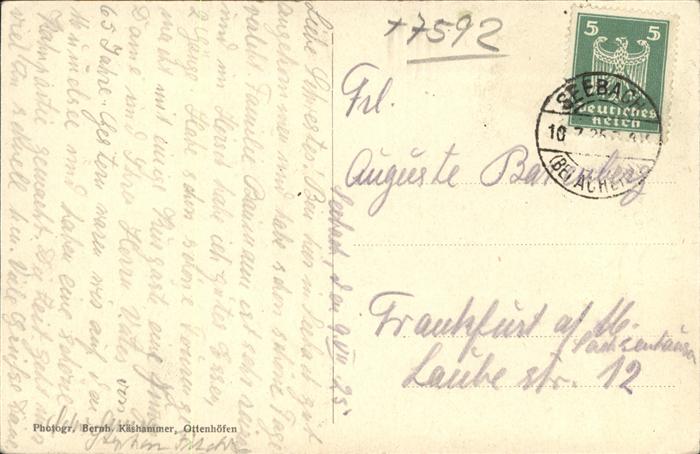 +7592
5 5
Deutsches
Reich
SEEBACH
10.7.25
(BEI ACHERN)
Frl.
Auguste
Frankfurt a/M.
Sachsenhausen
Laube str. 12
Seebach den 9 VII 25.
Liebe Schwester! Bin hier in Seebach gut
angekommen und habe schon schöne Tage
verlebt. Familie Baumann ist sehr
und im Hirsch habe ich gutes Essen,
2 Gänge. Habe schon schöne
macht mit einer Kurgaste eine
Dame und Ihrer Herrn Vater von
65 Jahre. Gestern waren wir auf den
Mummelsee und haben eine schöne
gemacht. Die Zeit geht
schnell hin. Viele Grüße
Photogr. Bernh. Käshammer, Ottenhöfen